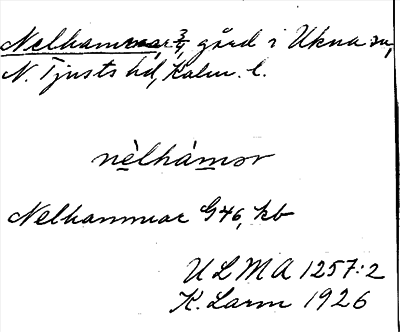 Nelhammar 3/4, gård i Ukna sn,
N. Tjusts hd, Kalm. l.
nèlhámər
Nelhammar G46, kb
ULMA 1257:2
K. Larm 1926